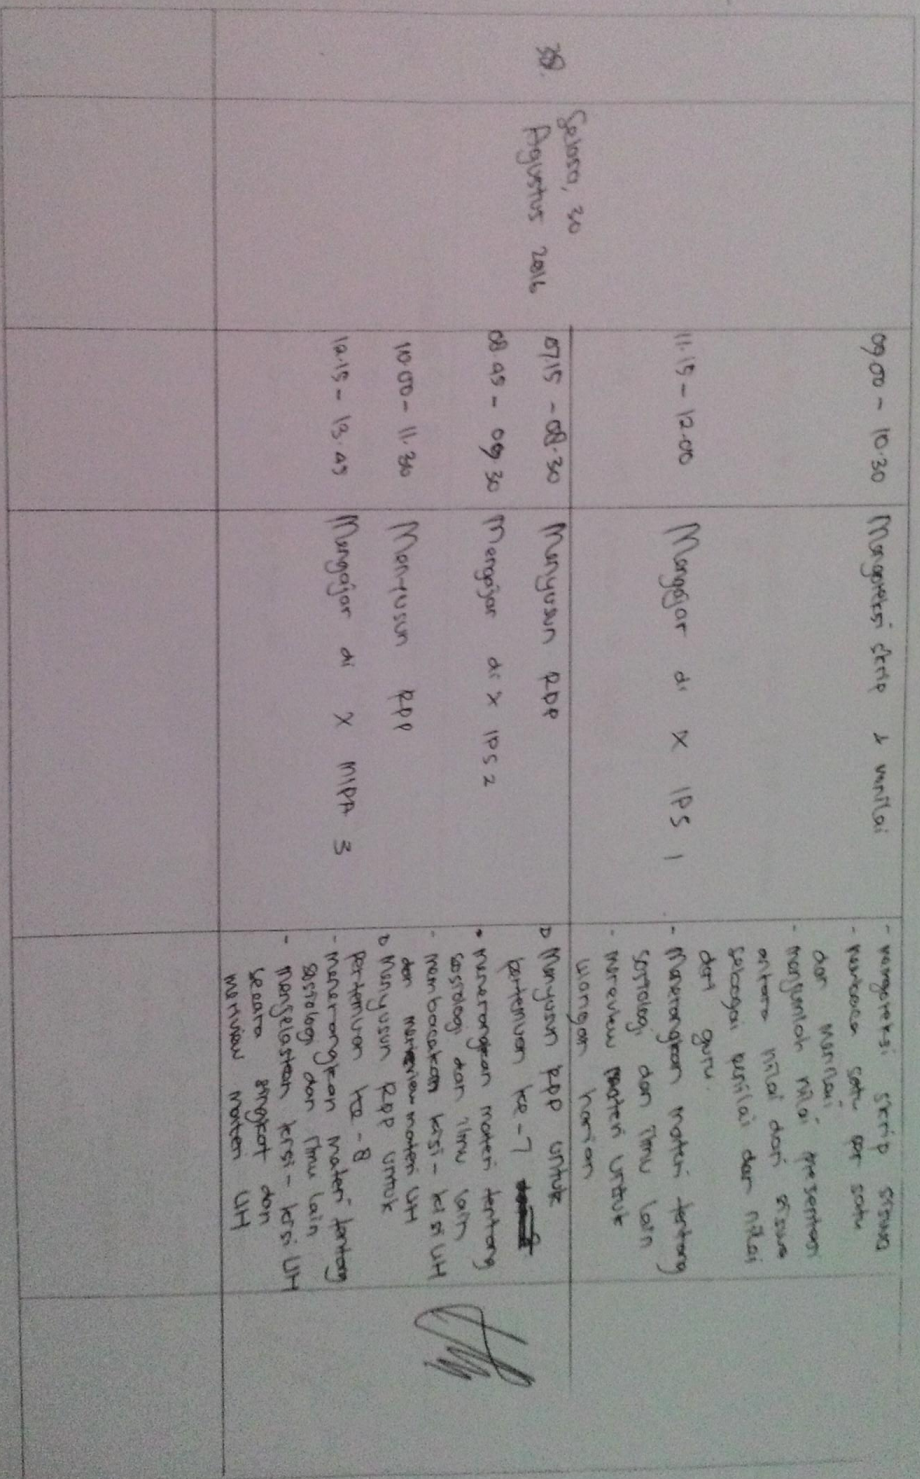 09.00 - 10.30
Mengoreksi skrip & menilai
- mengoreksi skrip siswa
- membaca satu per satu
dan menilai
- menjumlah nilai presentasi
antara nilai dari siswa
sebagai penilai dan nilai
dari guru.
11.15 - 12.00
Mengajar di X IPS 1
- Menerangkan materi tentang
sosiologi dan ilmu lain
- mereview materi untuk
ulangan harian
38.
Selasa, 30
Agustus 2016
07.15 - 08.30
Menyusun RPP
Menyusun RPP untuk
pertemuan ke-7
08.45 - 09.30
Mengajar di X IPS 2
menerangkan materi tentang
sosiologi dan ilmu lain
- membacakan kisi-kisi UH
dan mereview materi UH
10.00 - 11.30
Menyusun RPP
Menyusun RPP untuk
pertemuan ke-8
12.15 - 13.45
Mengajar di X MIPA 3
- menerangkan materi tentang
sosiologi dan ilmu lain
- menjelaskan kisi-kisi UH
secara singkat dan
meriview materi UH